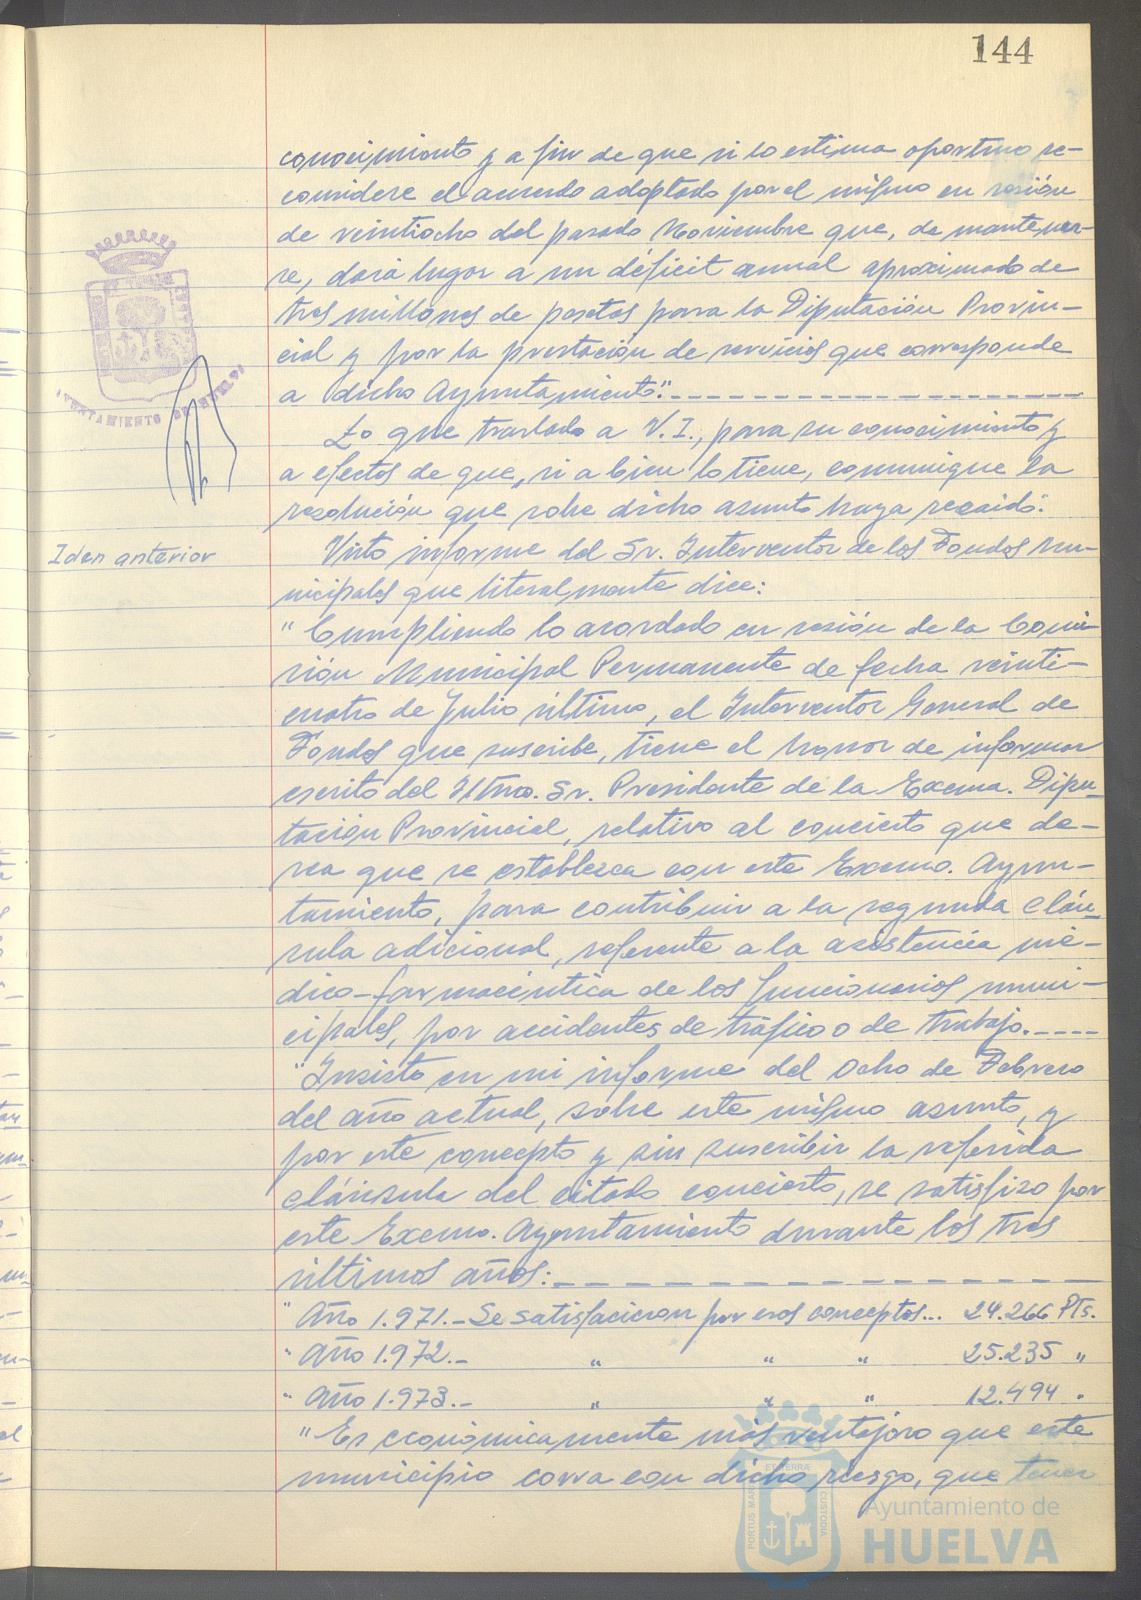 144
conocimiento y a fin de que si lo estima oportuno re-
considere el acuerdo adoptado por el mismo en sesión
de veintiocho del pasado Noviembre que, de mantener-
se, dará lugar a un déficit anual aproximado de
tres millones de pesetas para la Diputación Provin-
cial y por la prestación de servicios que corresponde
a dicho Ayuntamiento".
Lo que traslado a V.I., para su conocimiento y
a efectos de que, si a bien lo tiene, comunique la
resolución que sobre dicho asunto haya recaido".
Iden anterior
Visto informe del Sr. Interventor de los Fondos Mu-
nicipales que literalmente dice:
"Cumpliendo lo acordado en sesión de la Comi-
sión Municipal Permanente de fecha veinti-
cuatro de Julio último, el Interventor General de
Fondos que suscribe, tiene el honor de informar
escrito del Iltmo. Sr. Presidente de la Excma. Dipu-
tación Provincial, relativo al concierto que de-
sea que se establezca con este Excmo. Ayun-
tamiento, para contribuir a la segunda cláu-
sula adicional, referente a la asistencia mé-
dico-farmacéutica de los funcionarios muni-
cipales, por accidentes de tráfico o de trabajo.
"Insisto en mi informe del ocho de Febrero
del año actual, sobre este mismo asunto, y
por este concepto y sin suscribir la referida
cláusula del citado concierto, se satisfizo por
este Excmo. Ayuntamiento durante los tres
últimos años:
" Año 1.971.- Se satisfacieron por esos conceptos... 24.266 Pts.
" Año 1.972.- " " " 25.235 "
" Año 1.973.- " " " 12.494 "
"Es económicamente más ventajoso que este
municipio corra con dicho riesgo, que tener
AYUNTAMIENTO DE HUELVA
PORTUS MARIS
ET TERRÆ
CUSTODIA
Ayuntamiento de
HUELVA